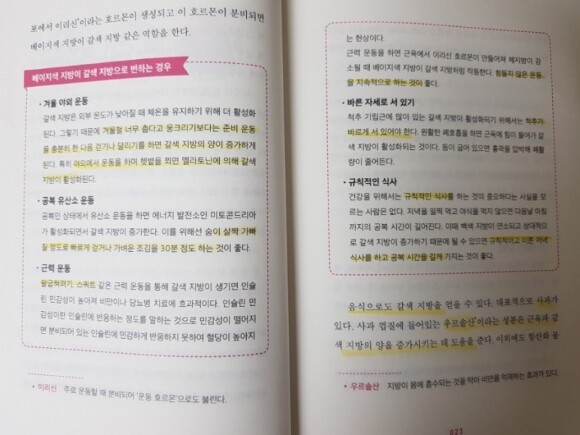 포에서 이리신*이라는 호르몬이 생성되고 이 호르몬이 분비되면
베이지색 지방이 갈색 지방 같은 역할을 한다.
베이지색 지방이 갈색 지방으로 변하는 경우
· 겨울 야외 운동
갈색 지방은 외부 온도가 낮아질 때 체온을 유지하기 위해 더 활성화
된다. 그렇기 때문에 겨울철 너무 춥다고 웅크리기보다는 준비 운동
을 충분히 한 다음 걷기나 달리기를 하면 갈색 지방의 양이 증가하게
된다. 특히 야외에서 운동을 하며 햇빛을 쬐면 멜라토닌에 의해 갈색
지방이 활성화된다.
· 공복 유산소 운동
공복인 상태에서 유산소 운동을 하면 에너지 발전소인 미토콘드리아
가 활성화되면서 갈색 지방이 증가한다. 이를 위해선 숨이 살짝 가빠
질 정도로 빠르게 걷거나 가벼운 조깅을 30분 정도 하는 것이 좋다.
· 근력 운동
팔굽혀펴기, 스쿼트 같은 근력 운동을 통해 갈색 지방이 생기면 인슐
린 민감성이 높아져 비만이나 당뇨병 치료에 효과적이다. 인슐린 민
감성이란 인슐린에 반응하는 정도를 말하는 것으로 민감성이 떨어지
면 분비되어 있는 인슐린에 민감하게 반응하지 못하여 혈당이 높아지
• 이리신 주로 운동할 때 분비되어 '운동 호르몬'으로도 불린다.
는 현상이다.
근력 운동을 하면 근육에서 이리신 호르몬이 만들어져 체지방이 감
소될 때 베이지색 지방이 갈색 지방처럼 작용한다. 힘들지 않은 운동
을 지속적으로 하는 것이 좋다.
· 바른 자세로 서 있기
척추 기립근에 많이 있는 갈색 지방이 활성화되기 위해서는 척추가
바르게 서 있어야 한다. 원활한 폐호흡을 하면 근육에 힘이 들어가 갈
색 지방이 활성화되는 것이다. 등이 굽어 있으면 흉곽을 압박해 폐활
량이 줄어든다.
· 규칙적인 식사
건강을 위해서는 규칙적인 식사를 하는 것이 중요하다는 사실을 모
르는 사람은 없다. 저녁을 일찍 먹고 야식을 먹지 않으면 다음날 아침
까지의 공복 시간이 길어진다. 이때 백색 지방이 연소되고 상대적으
로 갈색 지방이 증가하기 때문에 될 수 있으면 규칙적이고 이른 저녁
식사를 하고 공복 시간을 길게 가지는 것이 좋다.
음식으로도 갈색 지방을 얻을 수 있다. 대표적으로 사과가
있다. 사과 껍질에 들어있는 우르솔산*이라는 성분은 근육과 갈
색 지방의 양을 증가시키는 데 도움을 준다. 이외에도 항산화 물
• 우르솔산 지방이 몸에 흡수되는 것을 막아 비만을 억제하는 효과가 있다.
023